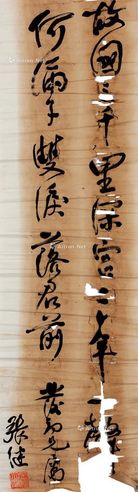 故國三千里深宮二十年一聲
何滿子雙淚落君前
張繼